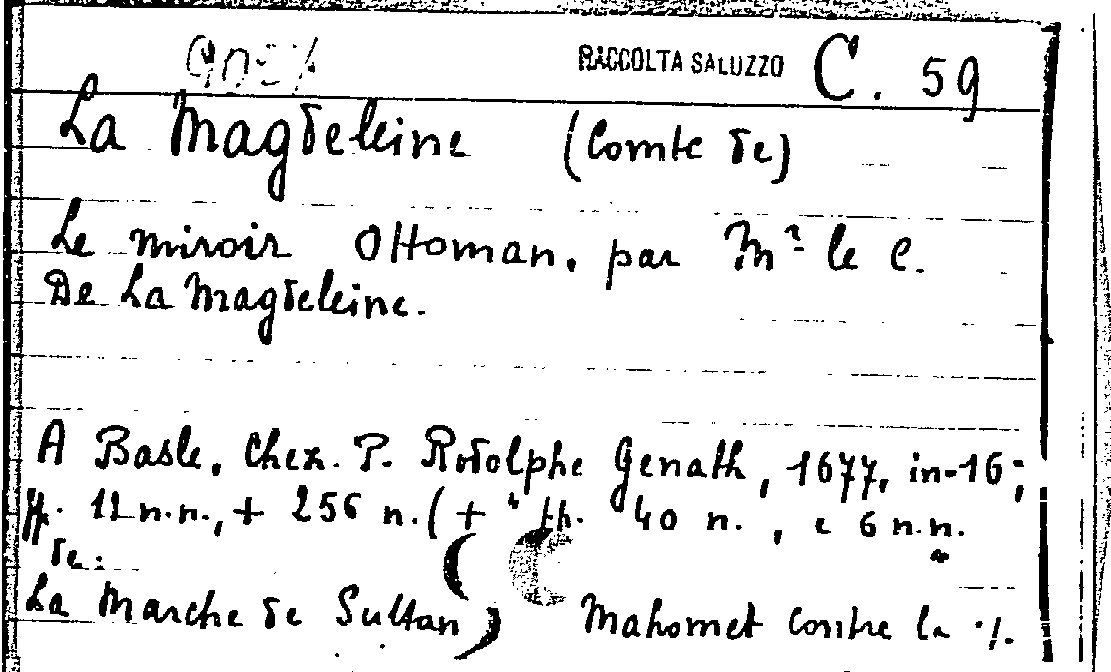 RACCOLTA SALUZZO C. 59
La Magdeleine (Comte de)
Le miroir Ottoman, par Mr le C.
De La Magdeleine.
A Basle, Chez. P. Rodolphe Genath, 1677, in-16;
ff. 12 n.n., + 256 n. (+ ff. 40 n., e 6 n.n.
de:
La Marche de Sultan) Mahomet contre la ./.